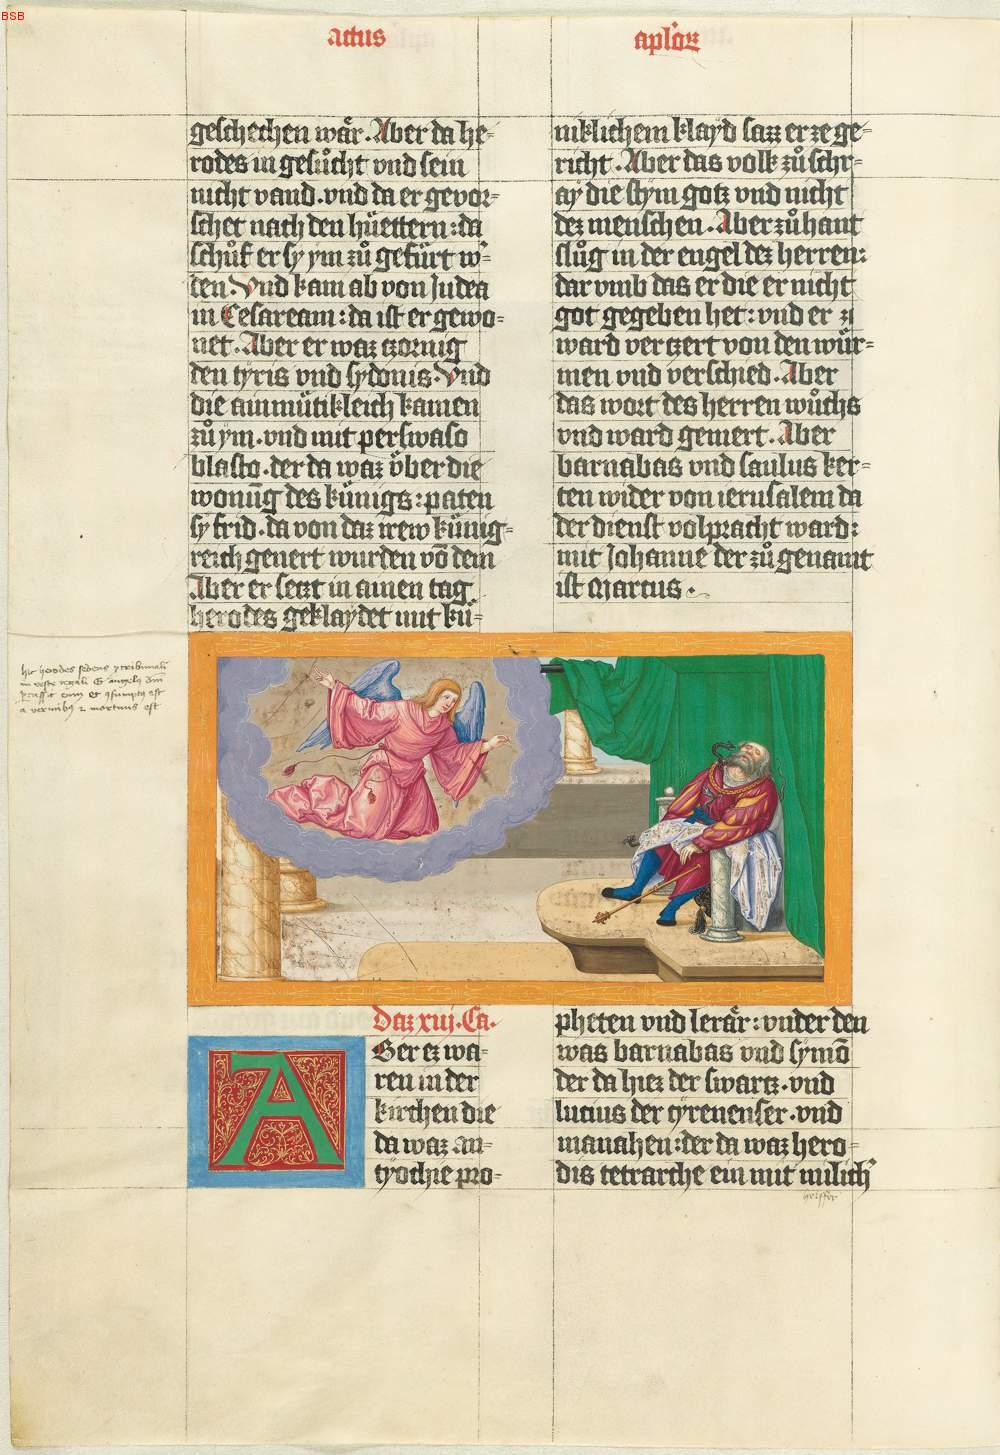 BSB
actus
aplõꝝ
geschechen wår. Aber da he-
rodes in gesůcht vnd sein
nicht vand. vnd da er gevor-
schet nach den hüettern: da
schůf er sy ym zů gefürt w̃-
den. Vnd kam ab von Judea
in Cesaream: da ist er gewo-
net. Aber er waz tzornig
den tÿris vnd sydonis. Vnd
die ainmütikleich kamen
zů ym. vnd mit perswaso
blasto. der da waz v̊ber die
wonūg des künigs: paten
sy frid. da von daz irew künig-
reich genert wurden võ dem
Aber er setzt in ainen tag
herodes geklaydet mit kü-
niklichem klayd sazz er ze ge-
richt. Aber das volk zů schr-
aÿ die stym gotz vnd nicht
dez menschen. Aber zůhant
slůg in der engel dez herren:
dar vmb das er die er nicht
got gegeben het: vnd er
ward vertzert von den wür-
men vnd verschied. Aber
das wort des herren wůchs
vnd ward gemert. Aber
barnabas vnd saulus ker-
ten wider von ierusalem da
der dienst volpracht ward:
mit Johanne der zů genamt
ist Marcus.
hic herodes sedens
in veste regali Et angelus
eum et est
a vermibus mortuus est
Daz xiij. Ca.
ABer ez wa-
ren in der
kirchen die
da waz An-
tyochie pro-
pheten vnd lerår: vnder den
was barnabas vnd symō
der da hiez der swartz. vnd
lucius der tÿrenenser. vnd
manahen: der da waz hero-
dis tetrarche ein mit milich